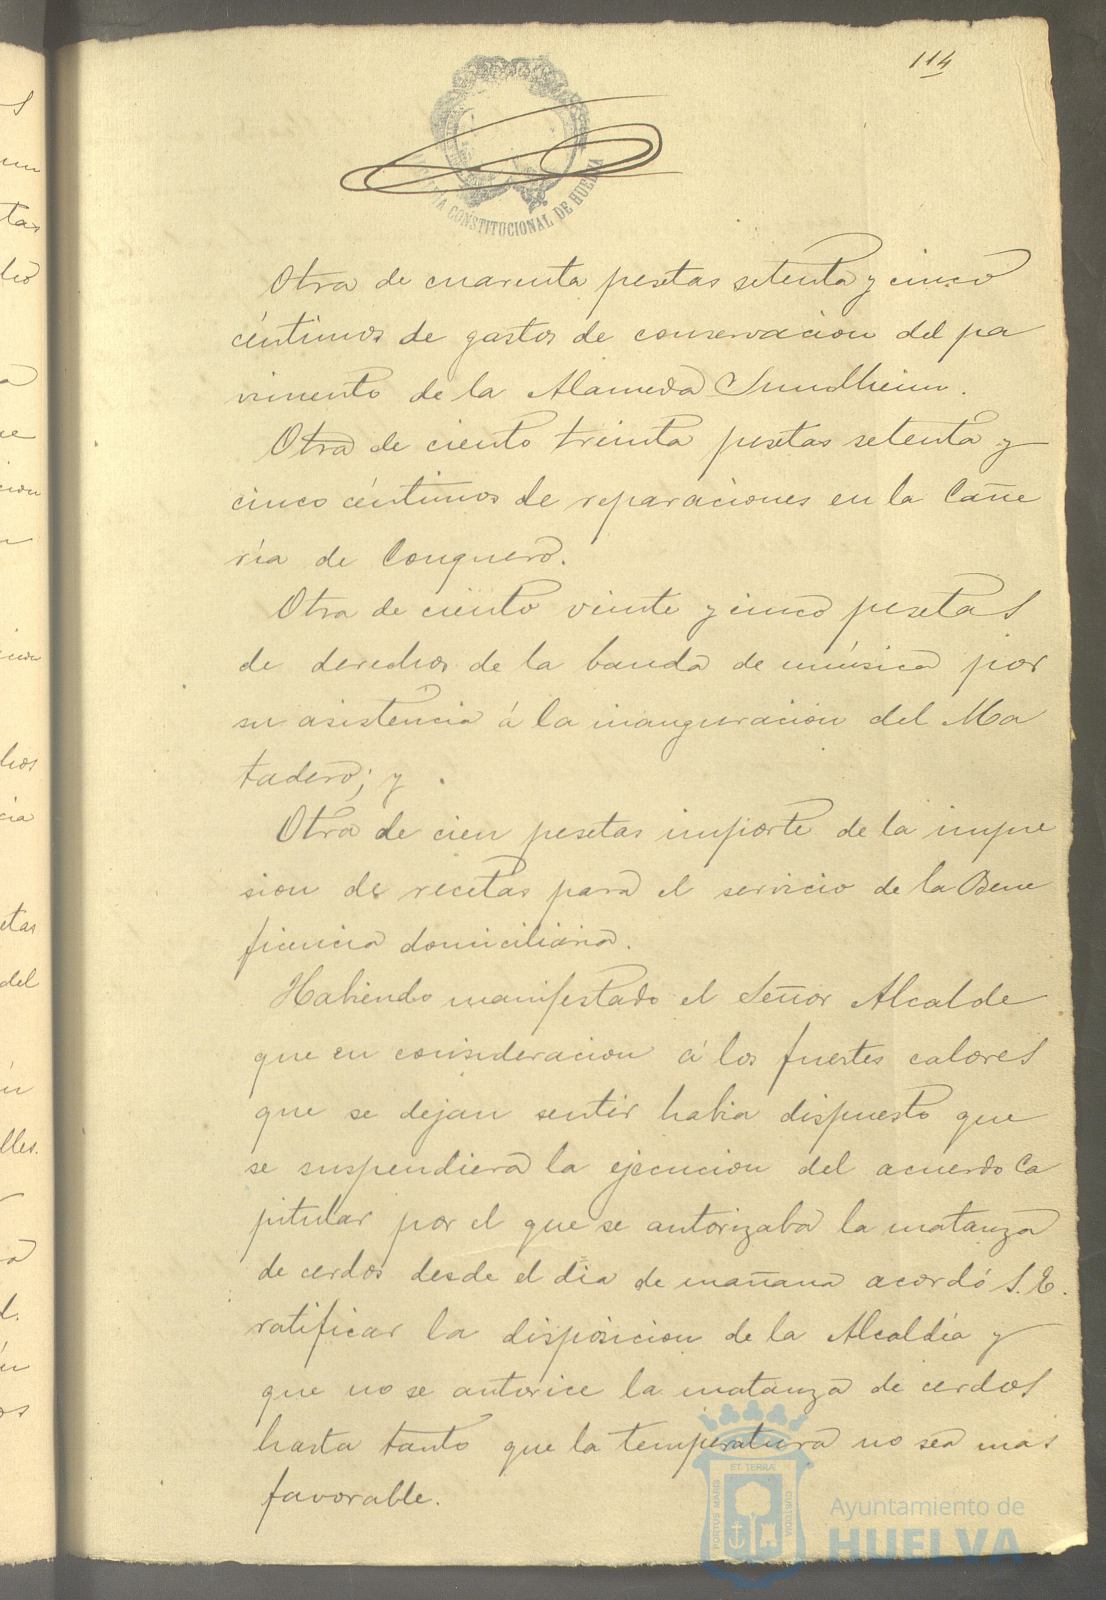 114
CONSTITUCIONAL DE HUELVA
Otra de cuarenta pesetas setenta y cinco
céntimos de gastos de conservacion del pa
vimento de la Alameda Sundheim.
Otra de ciento treinta pesetas setenta y
cinco céntimos de reparaciones en la Cañe
ría de Conquero.
Otra de ciento veinte y cinco pesetas
de derechos de la banda de música por
su asistencia á la inauguracion del Ma
tadero; y
Otra de cien pesetas importe de la impre
sion de recetas para el servicio de la Bene
ficencia domiciliaria.
Habiendo manifestado el Señor Alcalde
que en consideracion á los fuertes calores
que se dejan sentir habia dispuesto que
se suspendiera la ejecucion del acuerdo Ca
pitular por el que se autorizaba la matanza
de cerdos desde el dia de mañana acordó S.E.
ratificar la disposicion de la Alcaldía y
que no se autorice la matanza de cerdos
hasta tanto que la temperatura no sea mas
favorable.
PORTUS MARIS ET TERRÆ CUSTODIA
Ayuntamiento de
HUELVA